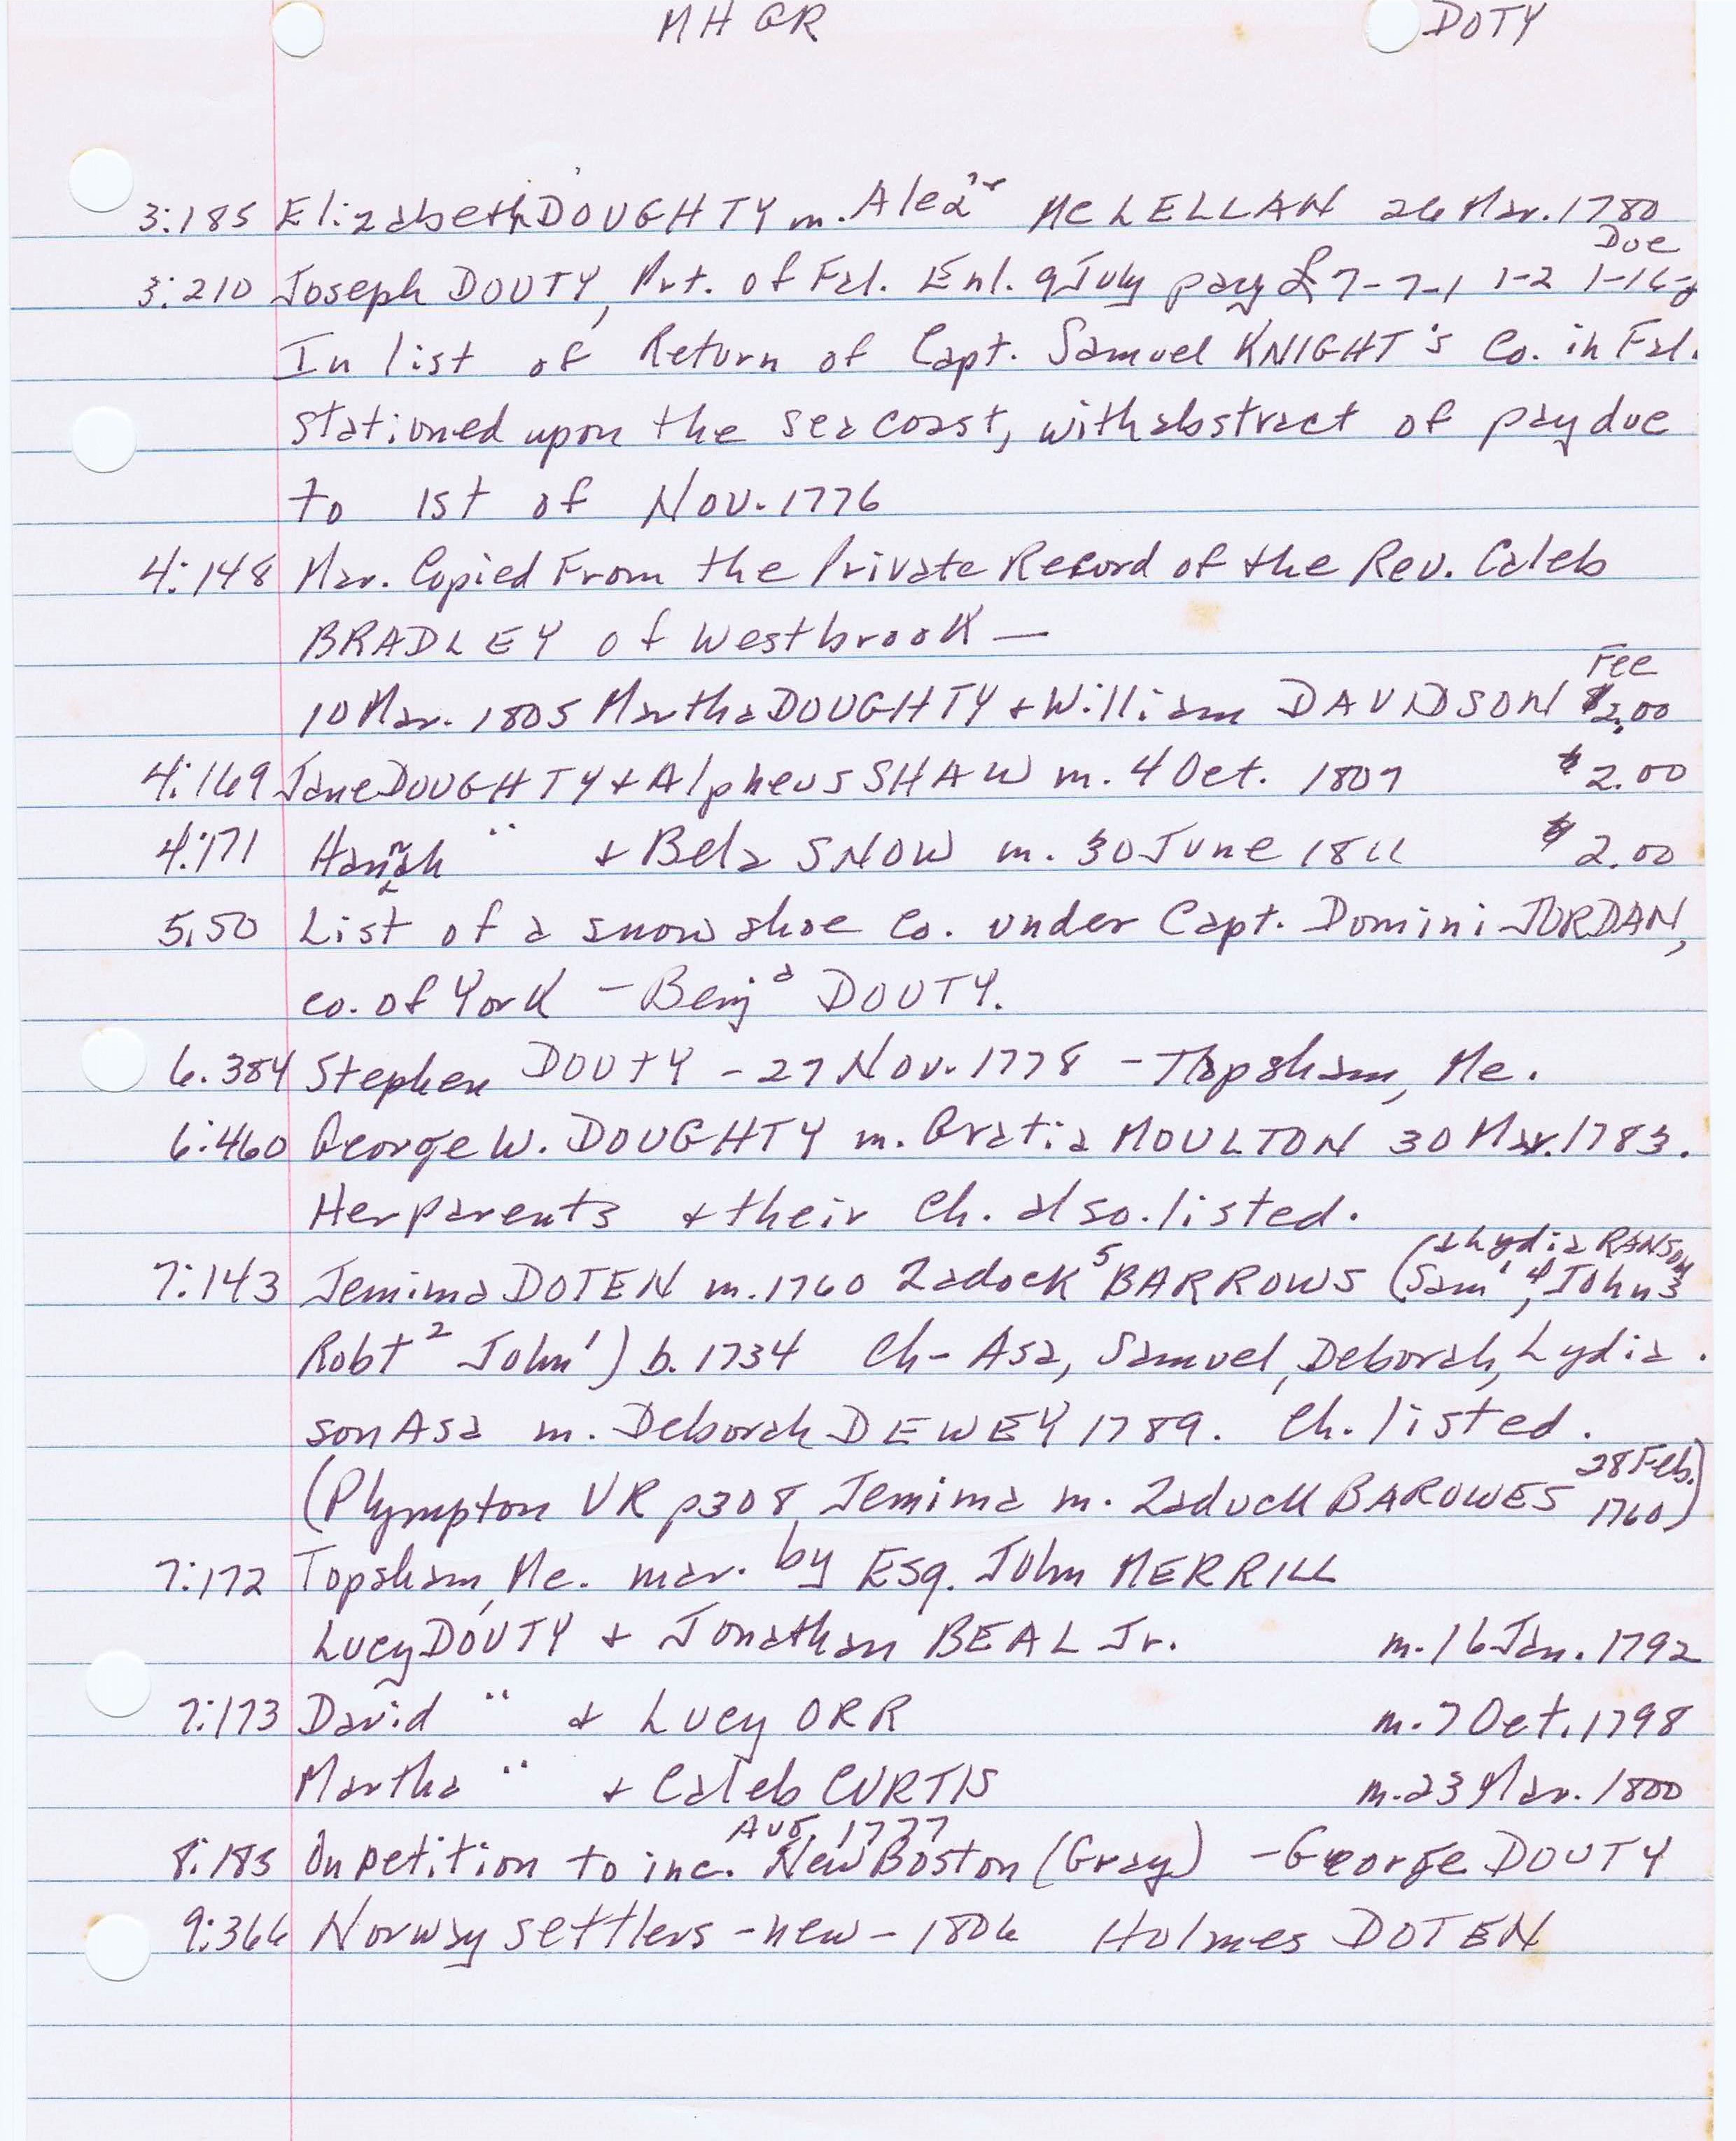 MHGR DOTY
3:185 Elizabeth DOUGHTY m. Alexr McLELLAN 26 Mar. 1780
Due
3:210 Joseph DOUTY, Prt. of Fal. Enl. 9 July pay £7-7-1 1-2 1-16-
In list of Return of Capt. Samuel KNIGHT's Co. in Fal.
stationed upon the sea coast, with abstract of pay due
to 1st of Nov. 1776
4:148 Mar. Copied From the Private Record of the Rev. Caleb
BRADLEY of Westbrook —
Fee
10 Mar. 1805 Martha DOUGHTY + William DAVIDSON $2.00
4:169 Jane DOUGHTY + Alpheus SHAW m. 4 Oct. 1807 $2.00
4:171 Hannah " + Bela SNOW m. 30 June 1811 $2.00
5:50 List of a snow shoe Co. under Capt. Domini JORDAN,
co. of York - Benja DOUTY.
6.384 Stephen DOUTY - 27 Nov. 1778 - Topsham, Me.
6:460 George W. DOUGHTY m. Gratia MOULTON 30 Mar. 1783.
Her parents + their Ch. also listed.
7:143 Jemima DOTEN m. 1760 Zadock5 BARROWS (Sam'4, John3
(+ Lydia RANSOM
Robt2 John1) b. 1734 Ch- Asa, Samuel, Deborah, Lydia.
son Asa m. Deborah DEWEY 1789. Ch. listed.
(Plympton VR p308, Jemima m. Zaduck BAROWES 28 Feb. 1760)
7:172 Topsham, Me. mar. by Esq. John MERRILL
Lucy DOUTY + Jonathan BEAL Jr. m. 16 Jan. 1792
7:173 David " + Lucy ORR m. 7 Oct. 1798
Martha " + Caleb CURTIS m. 23 Mar. 1800
Aug. 1777
8:185 On petition to inc. New Boston (Gray) - George DOUTY
9:366 Norway settlers - new - 1806 Holmes DOTEN